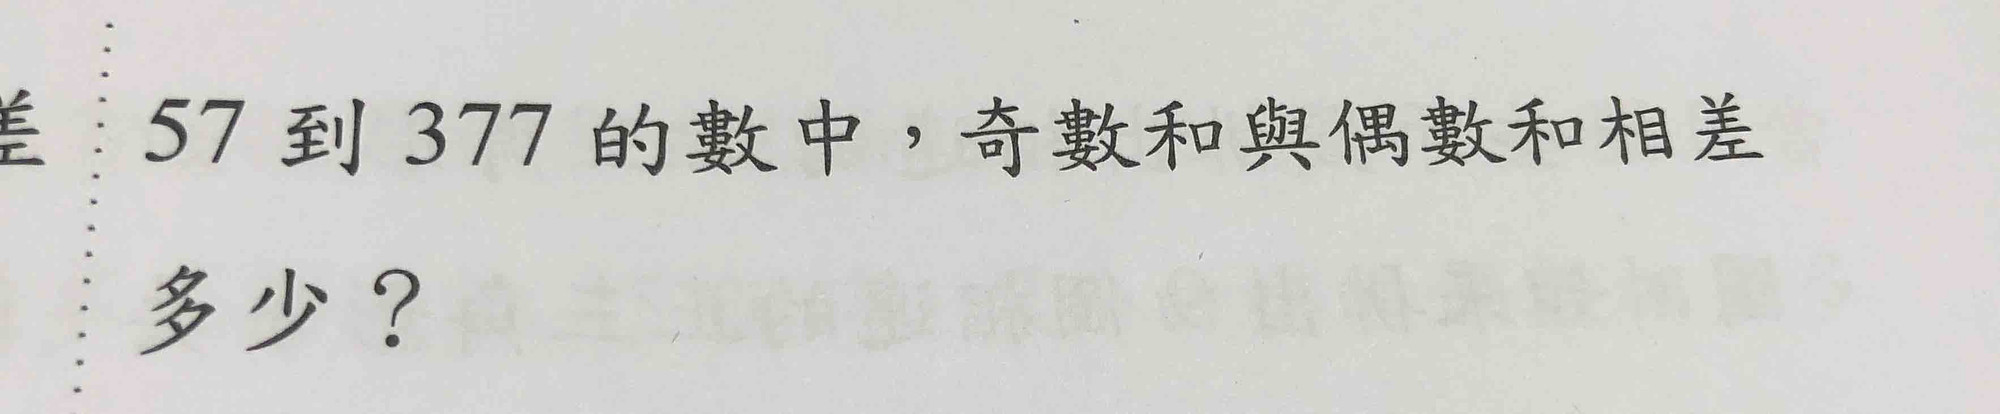 差 57 到 377 的數中，奇數和與偶數和相差
多少？